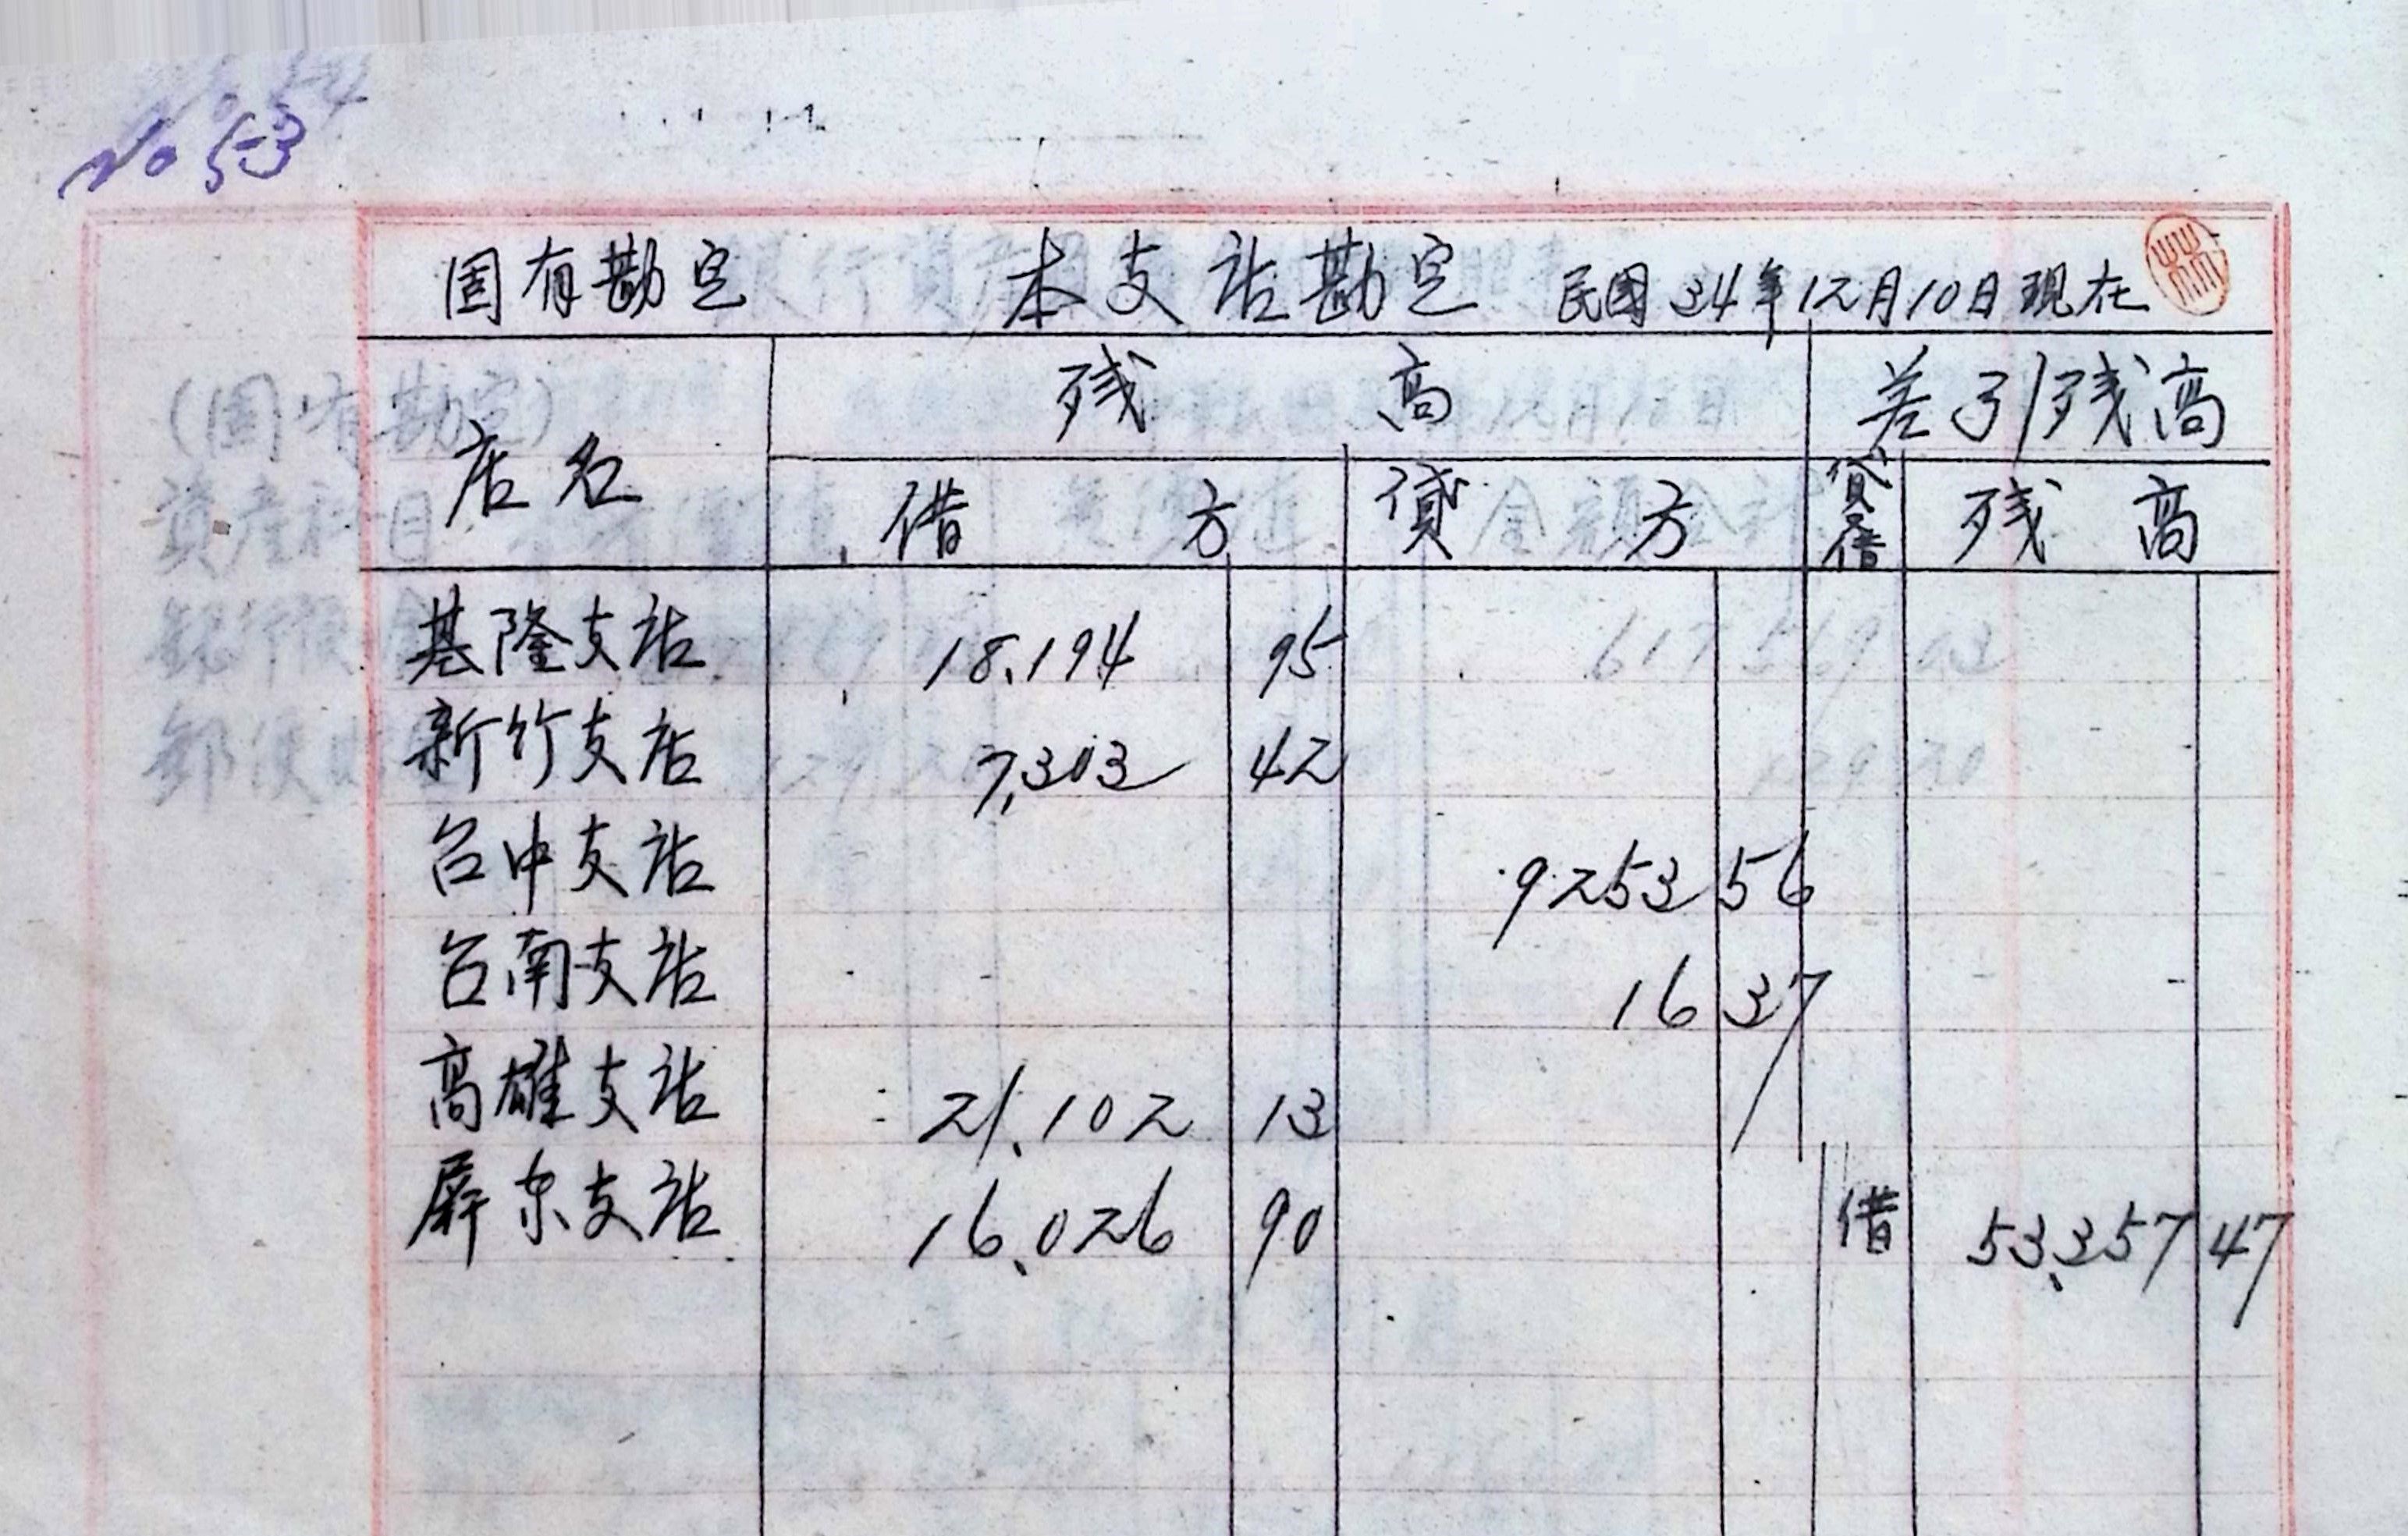 No 53
固有勘定 本支店勘定 民国34年12月10日現在
店名 残高 差引残高
借方 貸方 貸借 残高
基隆支店 18,194 95
新竹支店 7,303 42
台中支店 9253 56
台南支店 16 37
高雄支店 21,102 13
屏东支店 16,026 90 借 53,357 47